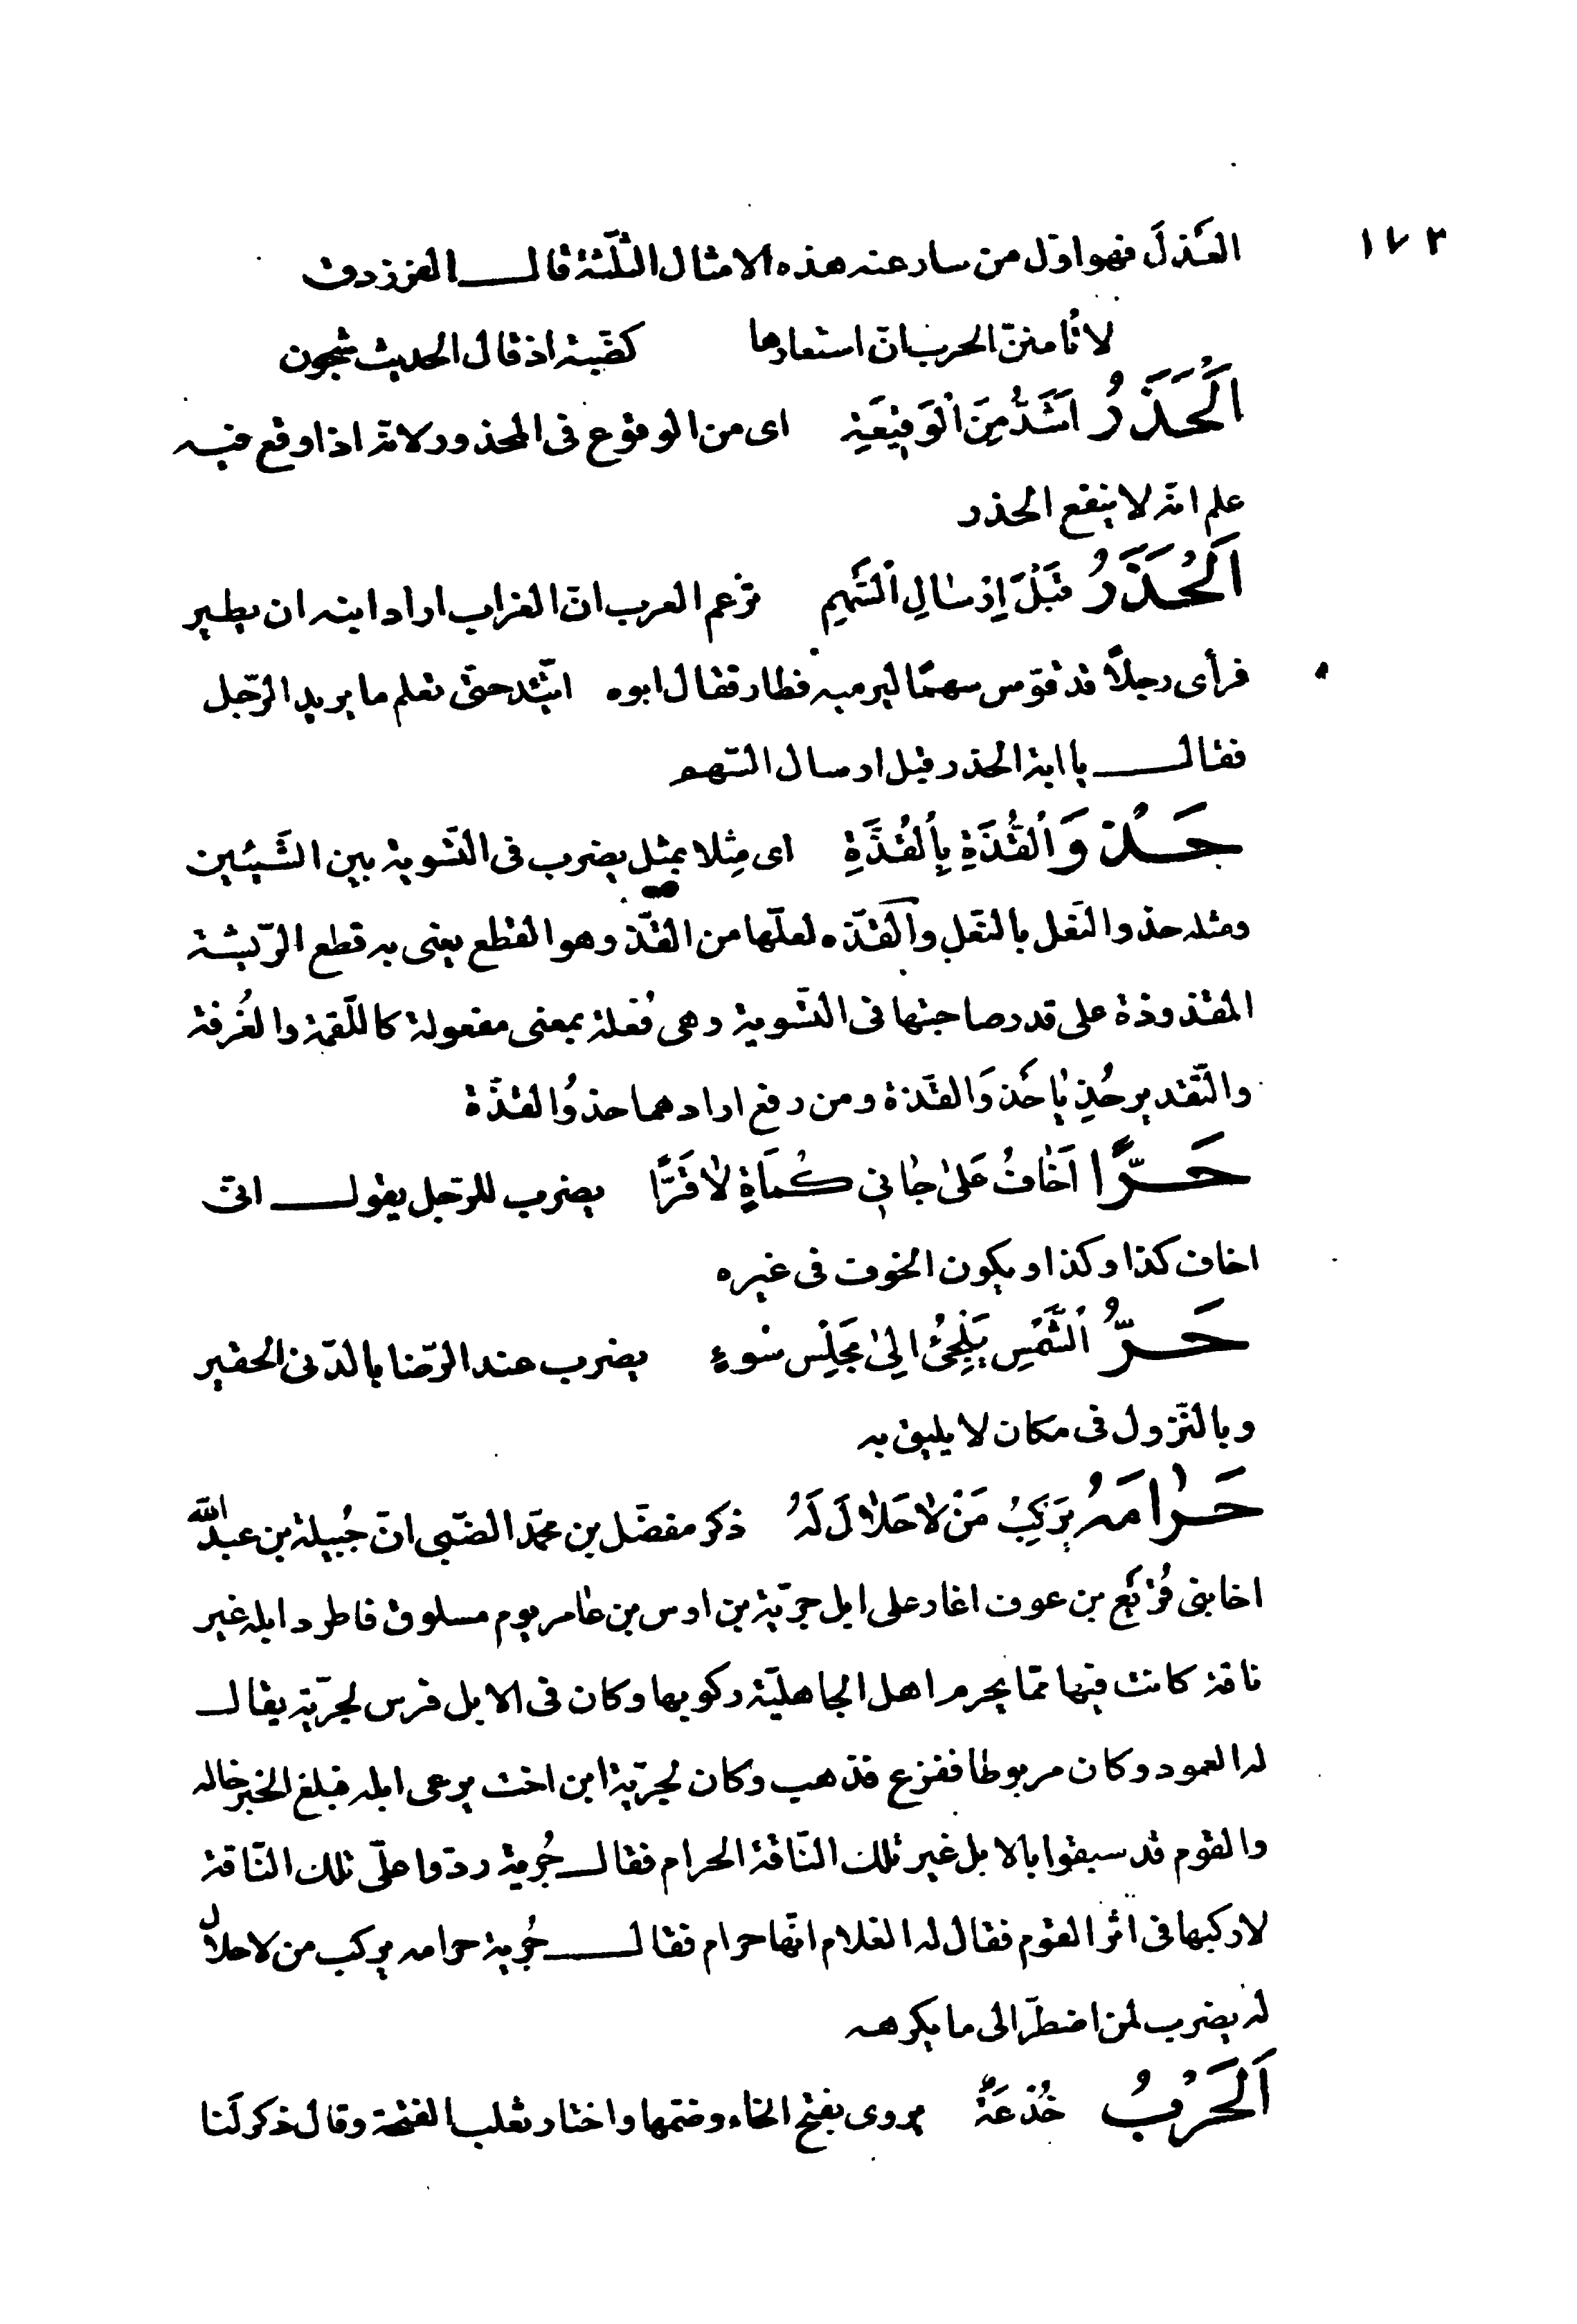 ١٧٢
العَذلَ فهو اوّل من سار عنه هذه الامثال الثلثة قال الفرزدق
لا تأمننّ الحرب انّ استعارها كضبّة اذ قال الحديث شجون
اَلحَذَرُ اَشَدُّ مِنَ اْلوَقيعَةِ اى من الوقوع فى المحذور لانّه اذا وقع فيه
علم انّه لا ينفع الحذر
اَلْحَذَرُ قَبْلَ اِرْسالِ اْلسَّهْمِ تزعم العرب انّ الغراب اراد ابنه ان يطير
فرأى رجلاً قد فوّس سهمًا ليرميه فطار فقال ابوه اتّئد حتّى نعلم ما يريد الرّجل
فقال يا ابة الحذر قبل ارسال السّهم
حَذْوَ اْلقُذَّةِ بِاْلقُذَّةِ اى مِثلا بمثل يضرب فى التّسوية بين الشّيئين
ومثله حذو النّعل بالنّعل والقذّه لعلّها من القذّ وهو القطع يعنى به قطع الرّيشة
المقذوذة على قدر صاحبتها فى التّسوية وهى فُعلة بمعنى مفعولة كاللّقمة والغُرفة
والتّقدير حُذِيا حَذوَ القذّة ومن رفع اراد هما حذوُ القذّة
حَرًّا اَخافُ عَلى جانى كُمَاةٍ لا قَرًّا يضرب للرّجل يقول انّى
اخاف كذا وكذا ويكون الخوف فى غيره
حَرُّ اْلشَّمْسِ يُلْجِئُ اِلى مَجْلِسِ سُوءٍ يضرب عند الرّضا بالدّنى الحقير
وبالنّزول فى مكان لا يليق به
حَرامَهُ يَرْكَبُ مَنْ لا حَلالَ لَهُ ذكر مفضّل بن محمّد الضّبى انّ جُبيلة بن عبد الله
اخا بنى قُرَيْع بن عوف اغار على ابل جريّة بن اوس بن عامر يوم مسلوق فاطرد ابله غير
ناقة كانت فيها ممّا يحرم اهل الجاهليّة ركوبها وكان فى الابل فرس لجريّة يقال
له العمود وكان مربوطا ففزع فذهب وكان لجريّة ابن اخت يرعى ابله فبلغ الخبر خاله
والقوم قد سبقوا بالابل غير تلك النّاقة الحرام فقال جُرية ردّوا علىّ تلك النّاقة
لاركبها فى اثر القوم فقال له الغلام انّها حرام فقال جُرية حرامه يركب من لا حلال
له يضرب لمن اضطرّ الى ما يكرهه
اَلْحَرْبُ خُدْعَةٌ يروى بفتح الخاء وضمّها واختار ثعلب الفتحة وقال ذكر لنا